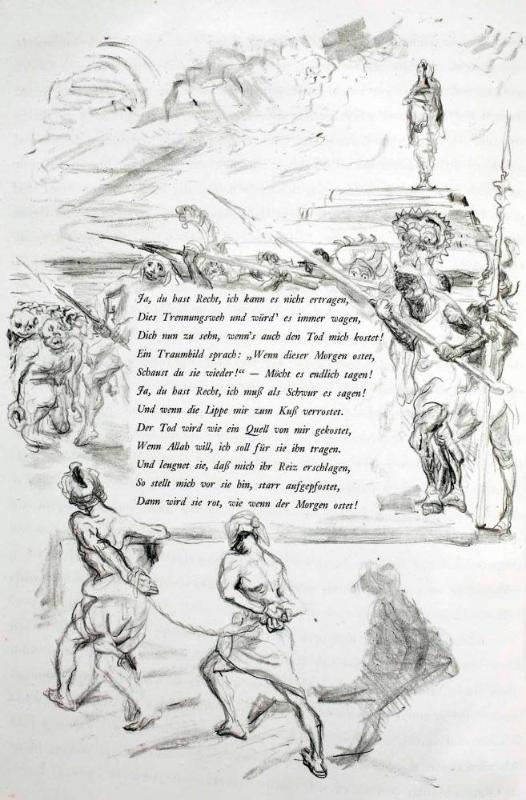 Ja, du hast Recht, ich kann es nicht ertragen,
Dies Trennungsweh und würd' es immer wagen,
Dich nun zu sehn, wenn's auch den Tod mich kostet!
Ein Traumbild sprach: „Wenn dieser Morgen ostet,
Schaust du sie wieder!“ — Möcht es endlich tagen!
Ja, du hast Recht, ich muß als Schwur es sagen!
Und wenn die Lippe mir zum Kuß verrostet.
Der Tod wird wie ein Quell von mir gekostet,
Wenn Allah will, ich soll für sie ihn tragen.
Und leugnet sie, daß mich ihr Reiz erschlagen,
So stellt mich vor sie hin, starr aufgepfostet,
Dann wird sie rot, wie wenn der Morgen ostet!